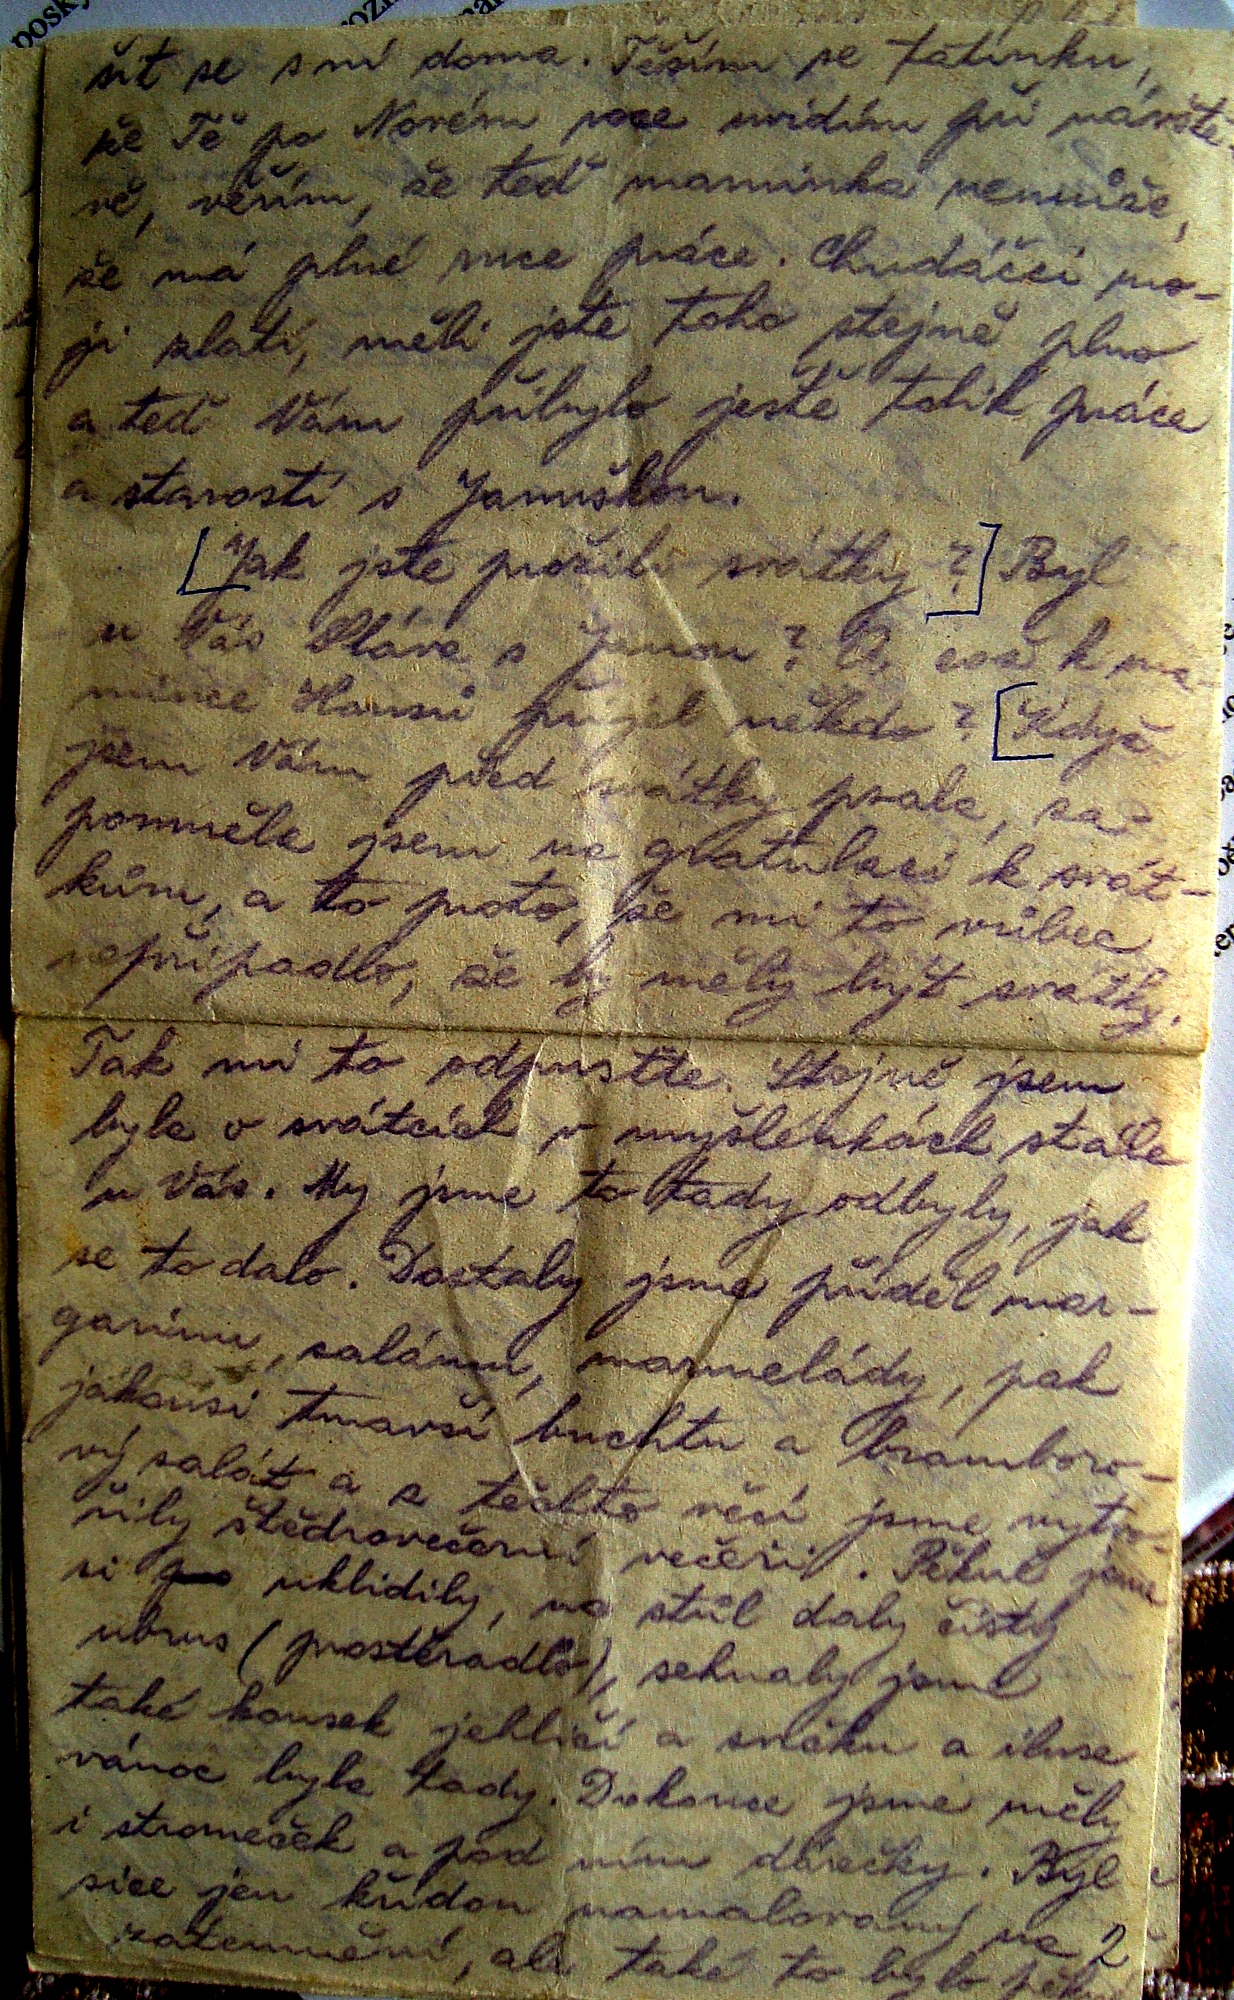 šit se s ní doma. Těším se tatínku,
že Tě po Novém roce uvidím při návště-
vě, věřím, že teď maminka nemůže,
že má plné ruce práce. Chudáčci mo-
ji zlatí, měli jste toho stejně plno
a teď Vám přibylo ještě tolik práce
a starostí s Jamuškou.
[Jak jste prožili svátky?] Byl
u Vás Sláva s Janou? A což k ma-
mince Hansů přijel někdo? [Když
jsem Vám před svátky psala, za-
pomněla jsem na gratulaci k svát-
kům, a to proto, že mi to vůbec
nepřipadlo, že by měly být svátky.
Tak mi to odpusťte. Stejně jsem
byla o svátcích v myšlenkách stále
u Vás. My jsme to tady odbyly, jak
se to dalo. Dostaly jsme příděl mar-
garinu, salámu, marmelády, pak
jakousi tmavší buchtu a bramboro-
vý salát a z těchto věcí jsme vytvo-
řily štědrovečerní večeři. Pěkně jsme
si uklidily, na stůl daly čistý
ubrus (prostěradlo), sehnaly jsme
také kousek jehličí a svíčku a iluse
vánoc byla tady. Dokonce jsme měly
i stromeček a pod ním dárečky. Byl
sice jen křídou namalovaný na
zatemnění, ale také to bylo pěk
2